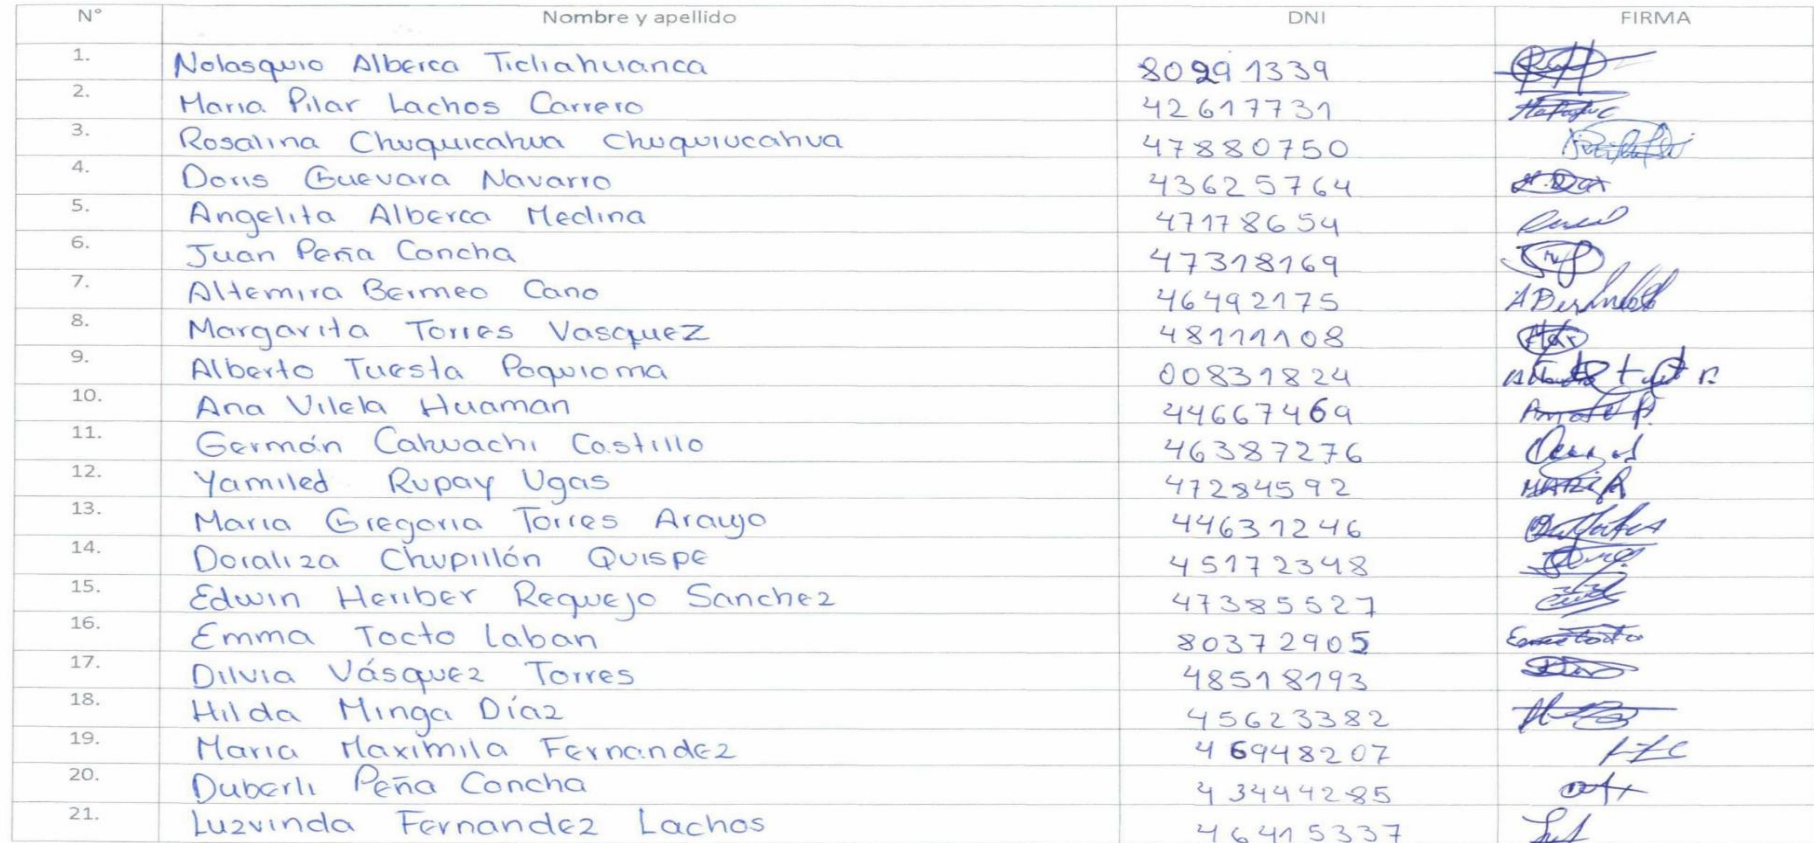 N° Nombre y apellido DNI FIRMA
1. Nolasquio Alberca Ticliahuanca 80291339
2. Maria Pilar Lachos Carrero 42617731
3. Rosalina Chuquicahua Chuquiucahua 47880750
4. Doris Guevara Navarro 43625764
5. Angelita Alberca Medina 47178654
6. Juan Peña Concha 47318169
7. Altemira Bermeo Cano 46492175
8. Margarita Torres Vasquez 48111108
9. Alberto Tuesta Poquioma 00831824
10. Ana Vilela Huaman 44667469
11. Germán Cahuachi Castillo 46387276
12. Yamiled Rupay Ugas 47284592
13. Maria Gregoria Torres Araujo 44631246
14. Doraliza Chupillón Quispe 45172348
15. Edwin Heriber Requejo Sanchez 47385527
16. Emma Tocto Laban 80372905
17. Dilvia Vásquez Torres 48518193
18. Hilda Minga Díaz 45623382
19. Maria Maximila Fernandez 46948207
20. Duberli Peña Concha 43444285
21. Luzvinda Fernandez Lachos 46415337